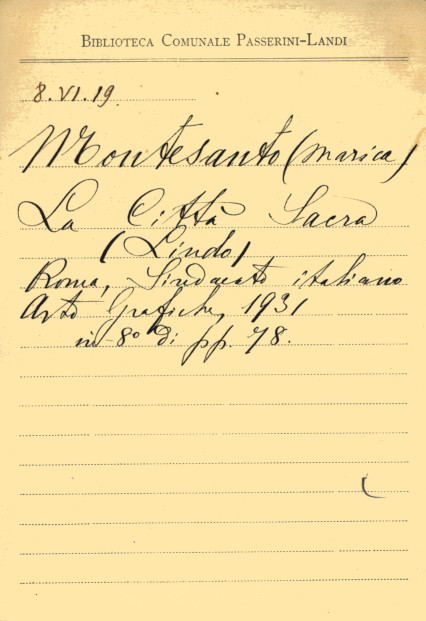 BIBLIOTECA COMUNALE PASSERINI-LANDI
8.VI.19
Montesanto (Marica)
La Città Sacra
(Lindo)
Roma, Sindacato italiano
Arti Grafiche, 1931
in-8° di pp. 78.